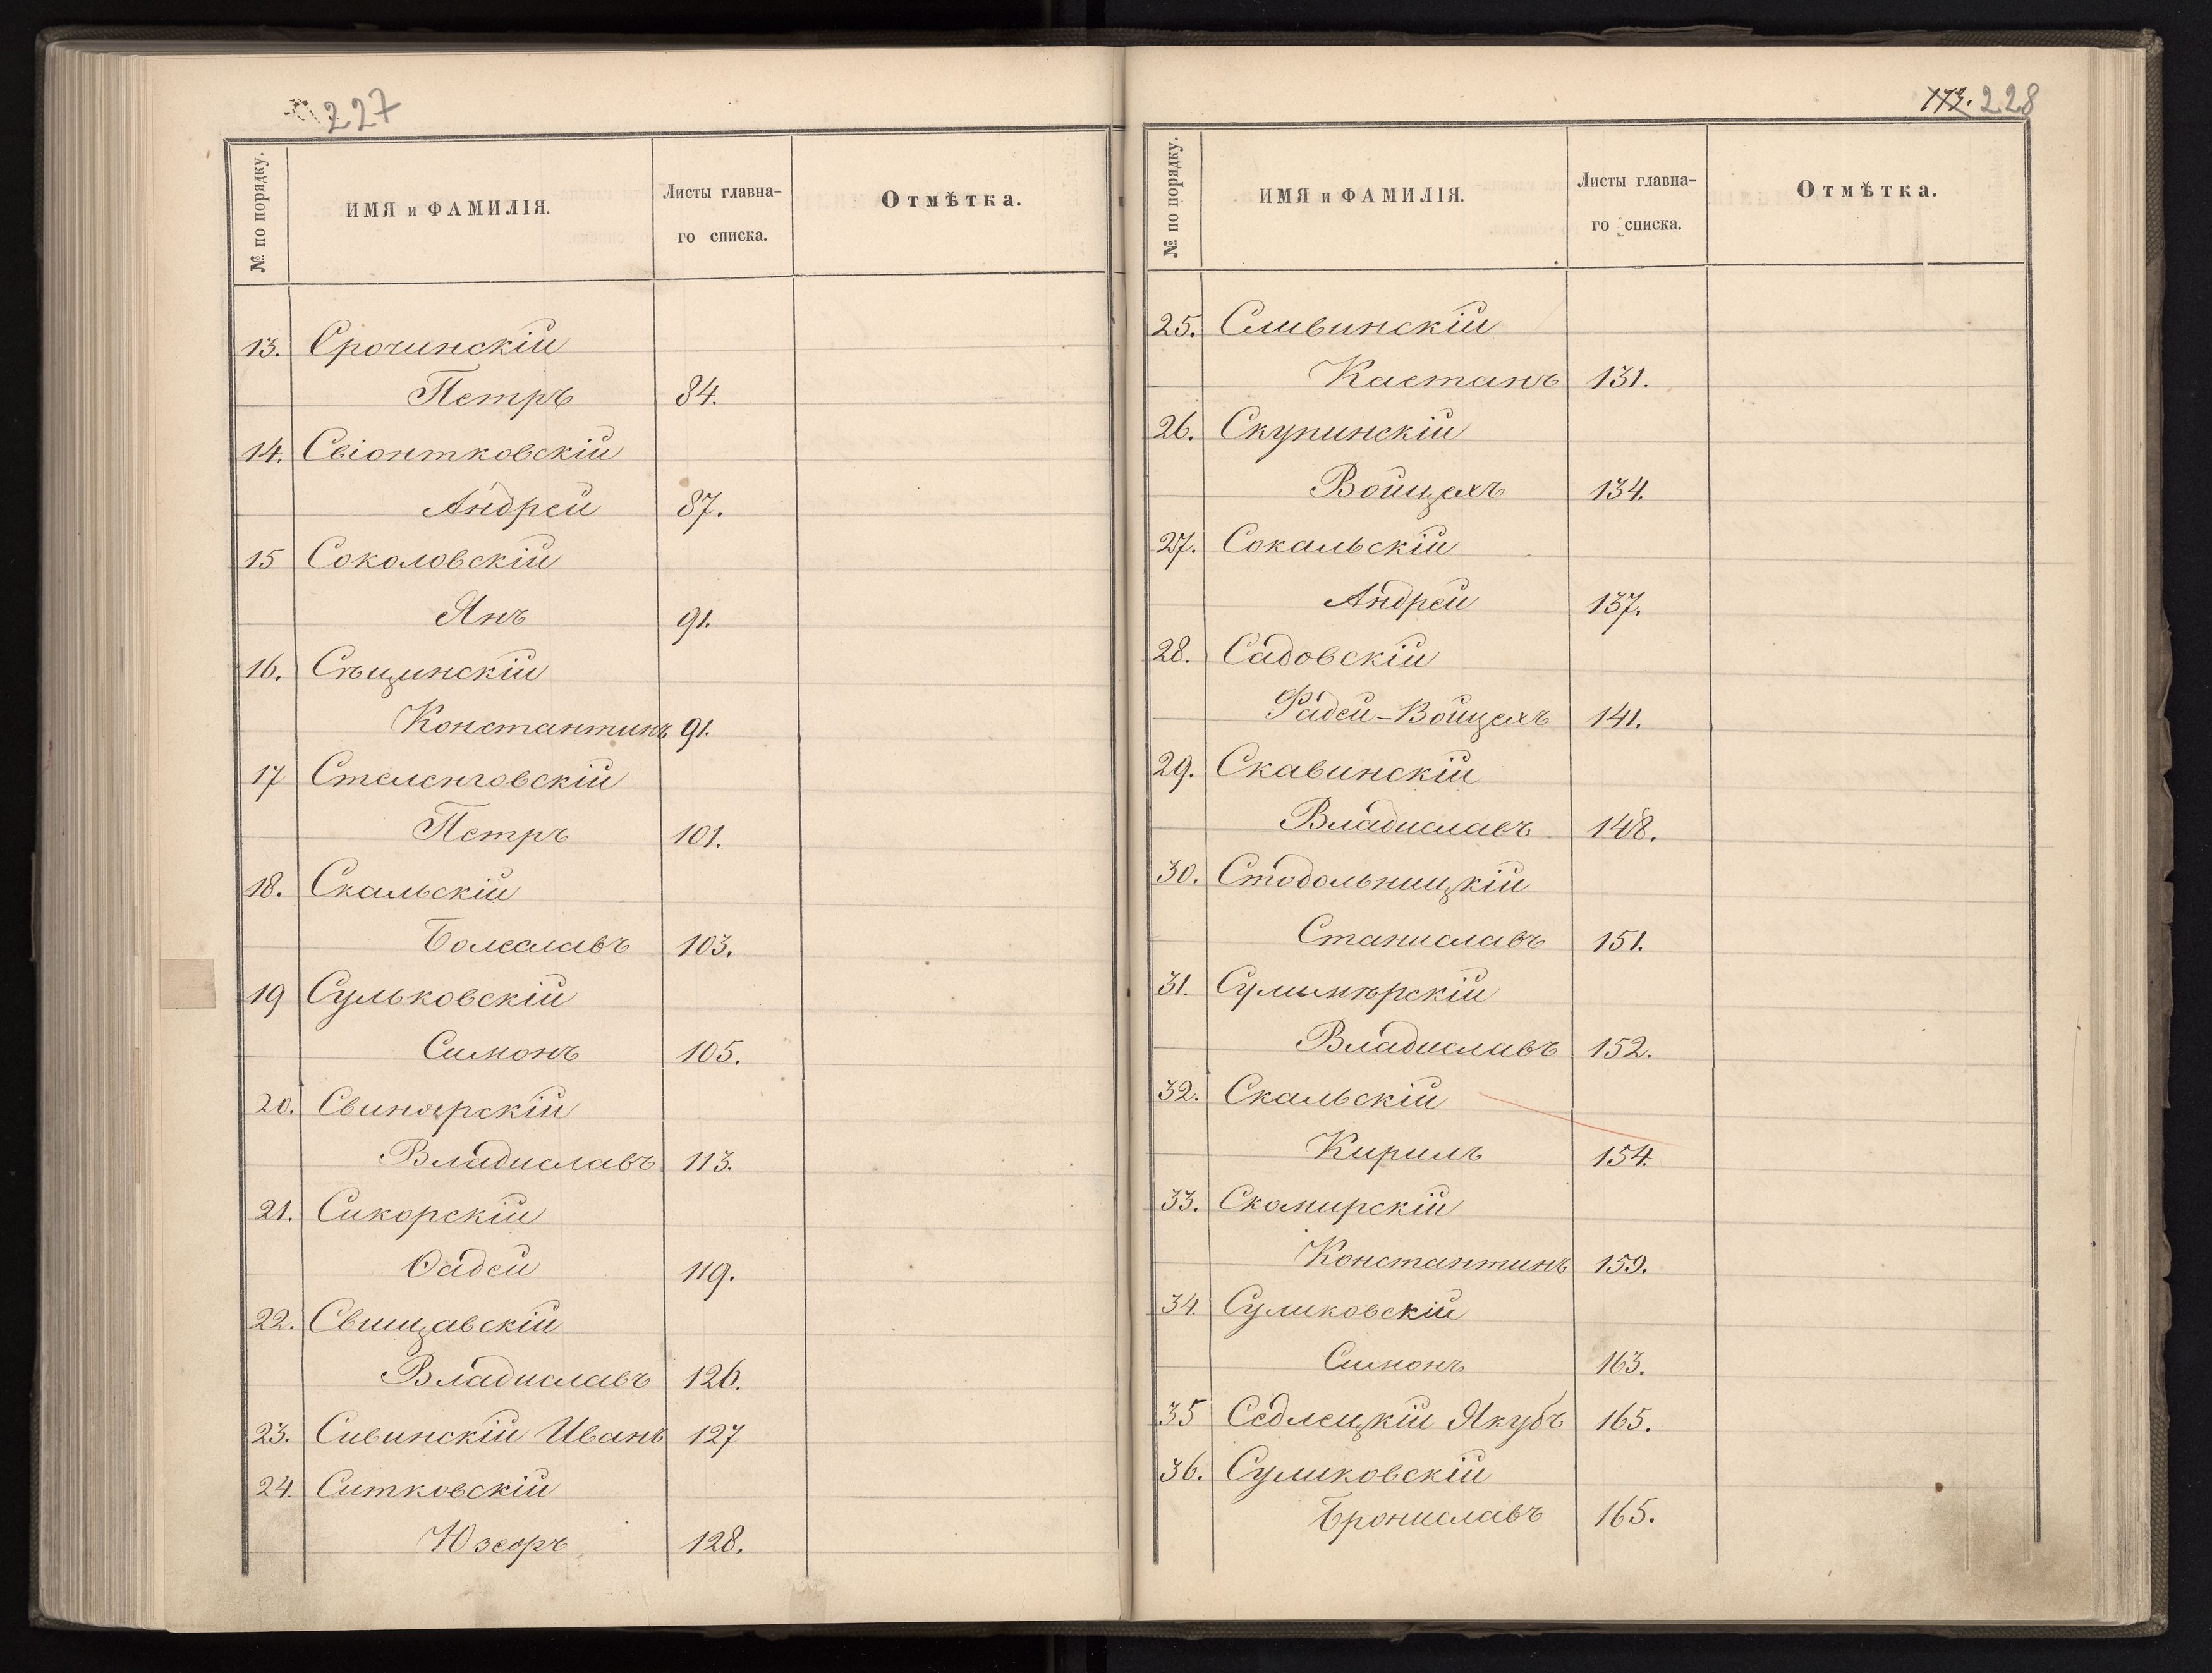 227
№ по порядку.
ИМЯ и ФАМИЛІЯ.
Листы главна-
го списка.
Отмѣтка.
13. Срочинскій
Петръ 84.
14. Свіонтковскій
Андрей 87.
15 Соколовскій
Янъ 91.
16. Сѣщинскій
Константинъ 91.
17 Стеленговскій
Петръ 101.
18. Скальскій
Болеславъ 103.
19 Сульковскій
Симонъ 105.
20. Свинярскій
Владиславъ 113.
21. Сикорскій
Фадей 119.
22. Свищавскій
Владиславъ 126.
23. Сивинскій Иванъ 127
24. Ситковскій
Юзефъ 128.
173. 228
№ по порядку.
ИМЯ и ФАМИЛІЯ.
Листы главна-
го списка.
Отмѣтка.
25. Сливинскій
Каетанъ 131.
26. Скупинскій
Войцехъ 134.
27. Сокальскій
Андрей 137.
28. Садовскій
Фадей-Войцехъ 141.
29. Скавинскій
Владиславъ 148.
30. Стодольницкій
Станиславъ 151.
31. Сулимѣрскій
Владиславъ 152.
32. Скальскій
Кирилъ 154.
33. Скомирскій
Константинъ 159.
34. Суликовскій
Симонъ 163.
35 Седлецкій Якубъ 165.
36. Суликовскій
Брониславъ 165.